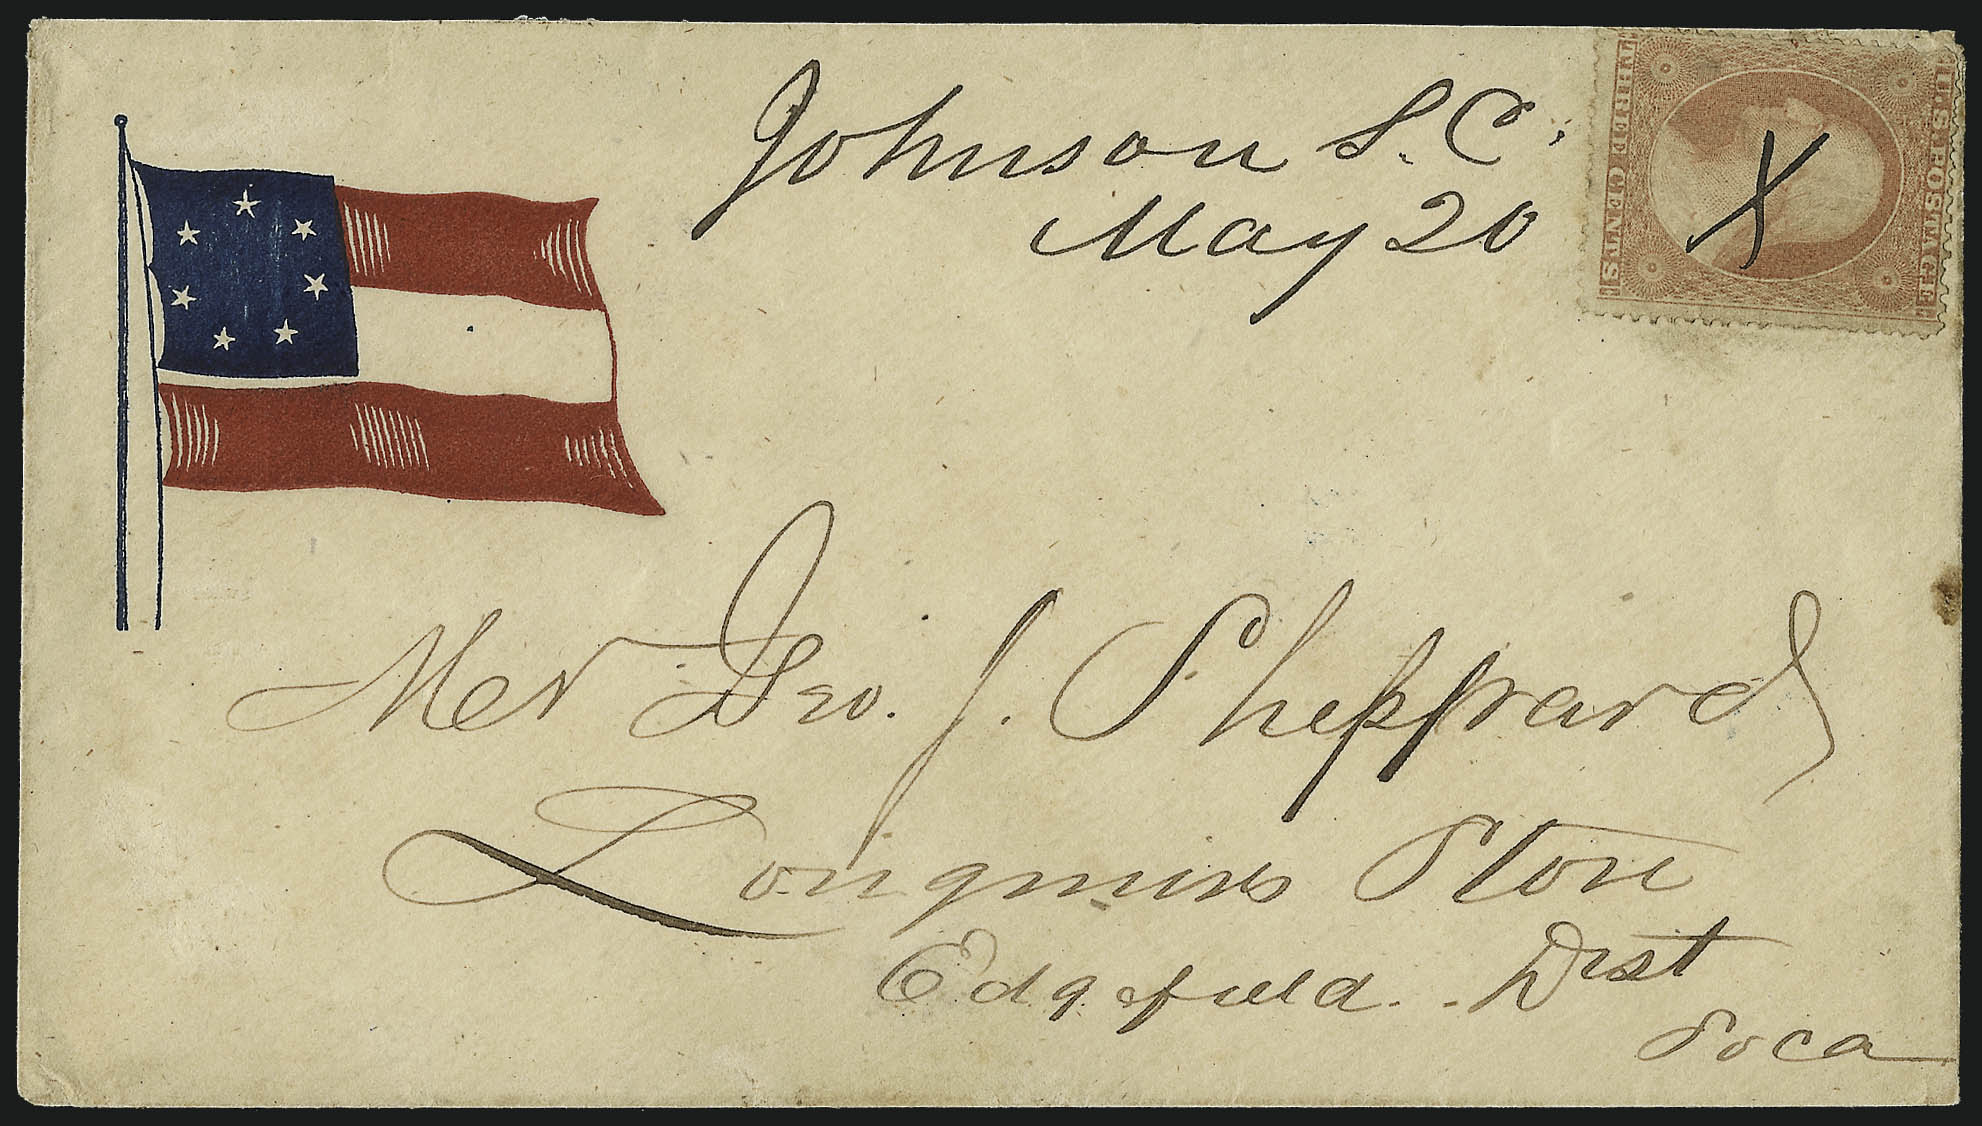 Johnson S.C.
May 20
U.S. POSTAGE
THREE CENTS
X
Mr Geo. J. Sheppard
Longmires Store
Edgefield Dist
So ca